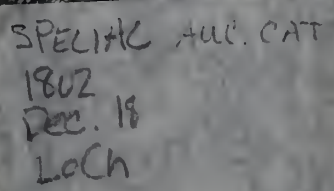 SPECIAL AUC. CAT
1802
Dec. 18
LoCh